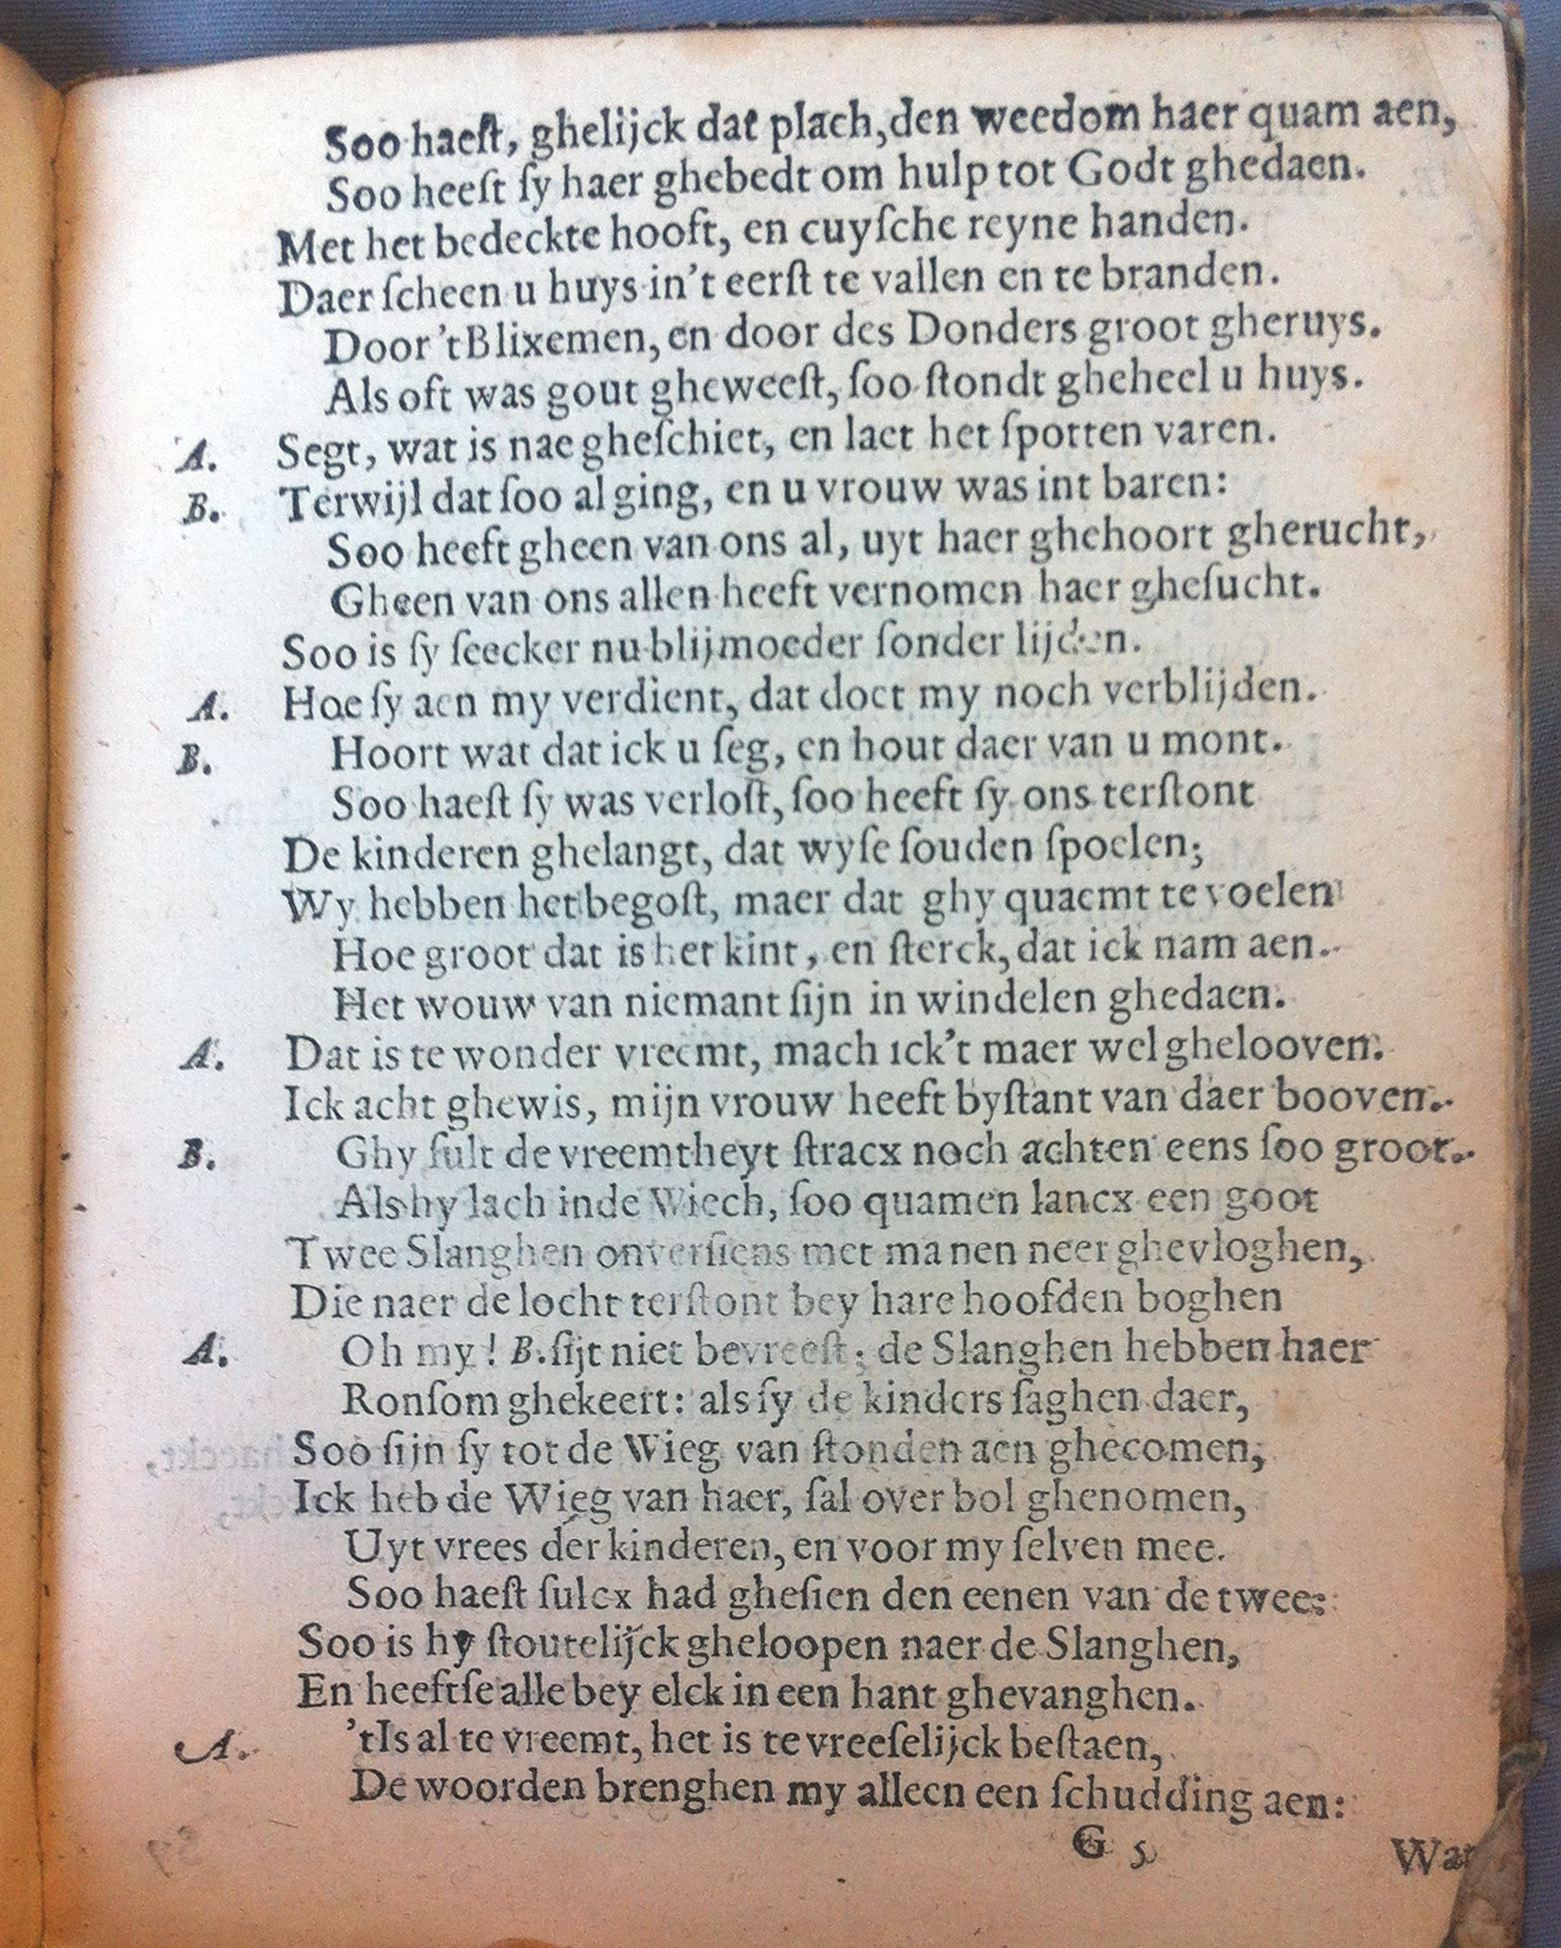 Soo haeſt, ghelijck dat plach, den weedom haer quam aen,
Soo heeft ſy haer ghebedt om hulp tot Godt ghedaen.
Met het bedeckte hooft, en cuyſche reyne handen.
Daer ſcheen u huys in't eerſt te vallen en te branden.
Door 't Blixemen, en door des Donders groot gheruys.
Als oft was gout gheweeſt, ſoo ſtondt gheheel u huys.
A. Segt, wat is nae gheſchiet, en laet het ſpotten varen.
B. Terwijl dat ſoo al ging, en u vrouw was int baren:
Soo heeft gheen van ons al, uyt haer ghehoort gherucht,
Gheen van ons allen heeft vernomen haer gheſucht.
Soo is ſy ſeecker nu blijmoeder ſonder lijden.
A. Hoe ſy aen my verdient, dat doet my noch verblijden.
B. Hoort wat dat ick u ſeg, en hout daer van u mont.
Soo haeſt ſy was verloſt, ſoo heeft ſy ons terſtont
De kinderen ghelangt, dat wyſe ſouden ſpoelen;
Wy hebben het begoſt, maer dat ghy quaemt te voelen
Hoe groot dat is het kint, en ſterck, dat ick nam aen.
Het wouw van niemant ſijn in windelen ghedaen.
A. Dat is te wonder vreemt, mach ick't maer wel ghelooven.
Ick acht ghewis, mijn vrouw heeft byſtant van daer booven.
B. Ghy ſult de vreemtheyt ſtracx noch achten eens ſoo groot.
Als hy lach inde Wiech, ſoo quamen lancx een goot
Twee Slanghen onverſiens met manen neer ghevloghen,
Die naer de locht terſtont bey hare hoofden boghen
A. Oh my! B. ſijt niet bevreeſt; de Slanghen hebben haer
Ronſom ghekeert: als ſy de kinders ſaghen daer,
Soo ſijn ſy tot de Wieg van ſtonden aen ghecomen,
Ick heb de Wieg van haer, ſal over bol ghenomen,
Uyt vrees der kinderen, en voor my ſelven mee.
Soo haeſt ſulcx had gheſien den eenen van de twee:
Soo is hy ſtoutelijck gheloopen naer de Slanghen,
En heeftſe alle bey elck in een hant ghevanghen.
A. 'tIs al te vreemt, het is te vreeſelijck beſtaen,
De woorden brenghen my alleen een ſchudding aen:
G 5